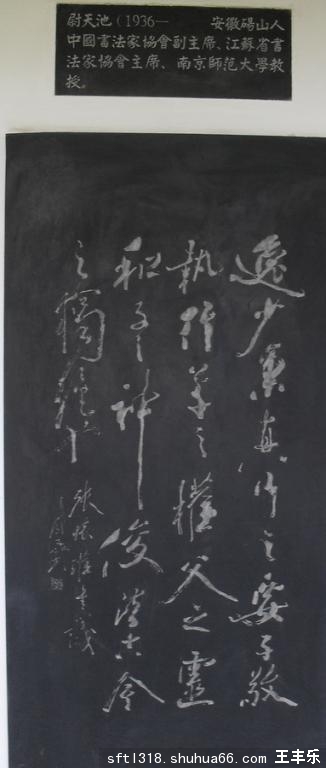 尉天池(1936— 安徽碭山人
中國書法家協會副主席、江蘇省書
法家協會主席、南京師范大學教
授。
逸少秉真行之要子敬
執行草之權父之靈
和子之神俊皆古今
之獨絕也
張懷瓘書議
sft1318.shuhua66.com 王丰乐